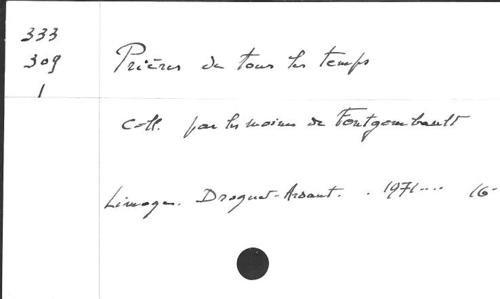 333
309
1
Prières de tous les temps
Coll. par les moines de Fontgombault
Limoges. Droguet-Ardant. . 1971.... 16-